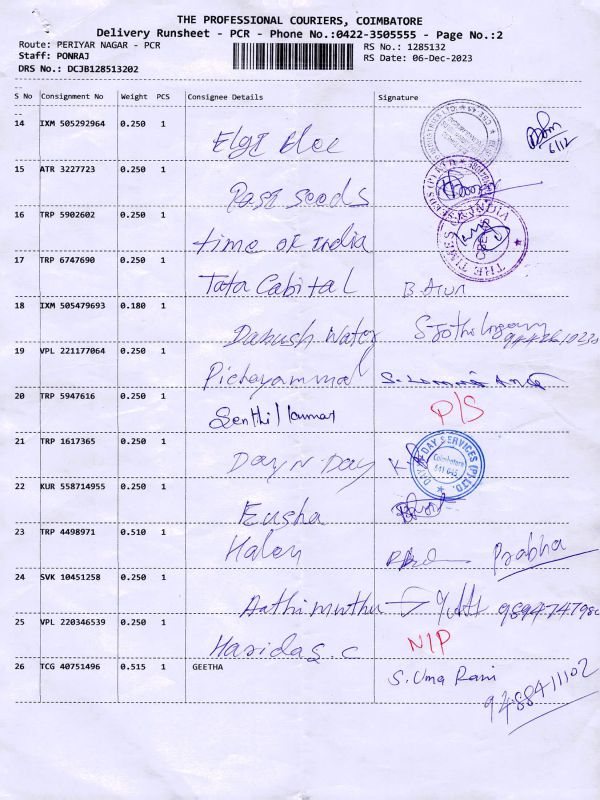 THE PROFESSIONAL COURIERS, COIMBATORE
Delivery Runsheet - PCR - Phone No.:0422-3505555 - Page No.:2
Route: PERIYAR NAGAR - PCR
RS No.: 1285132
Staff: PONRAJ
RS Date: 06-Dec-2023
DRS No.: DCJB128513202
S No Consignment No Weight PCS Consignee Details Signature
14 IXM 505292964 0.250 1
Elgi Elec
6/12
15 ATR 3227723 0.250 1
Rasi seeds
16 TRP 5902602 0.250 1
time of India
THE TIMES INDIA
17 TRP 6747690 0.250 1
Tata Cabital B. Arun
18 IXM 505479693 0.180 1
Danush Water
19 VPL 221177064 0.250 1
Pichayammal
20 TRP 5947616 0.250 1
Senthil kumar P/S
21 TRP 1617365 0.250 1
Day N Day
DAY N DAY SERVICES (P) LTD.
Coimbatore
641 045
22 KUR 558714955 0.250 1
Eusha
23 TRP 4498971 0.510 1
Prabha
24 SVK 10451258 0.250 1
Aathimuthu
25 VPL 220346539 0.250 1
Haridas.c N/P
26 TCG 40751496 0.515 1 GEETHA
S. Uma Rani
9488411102